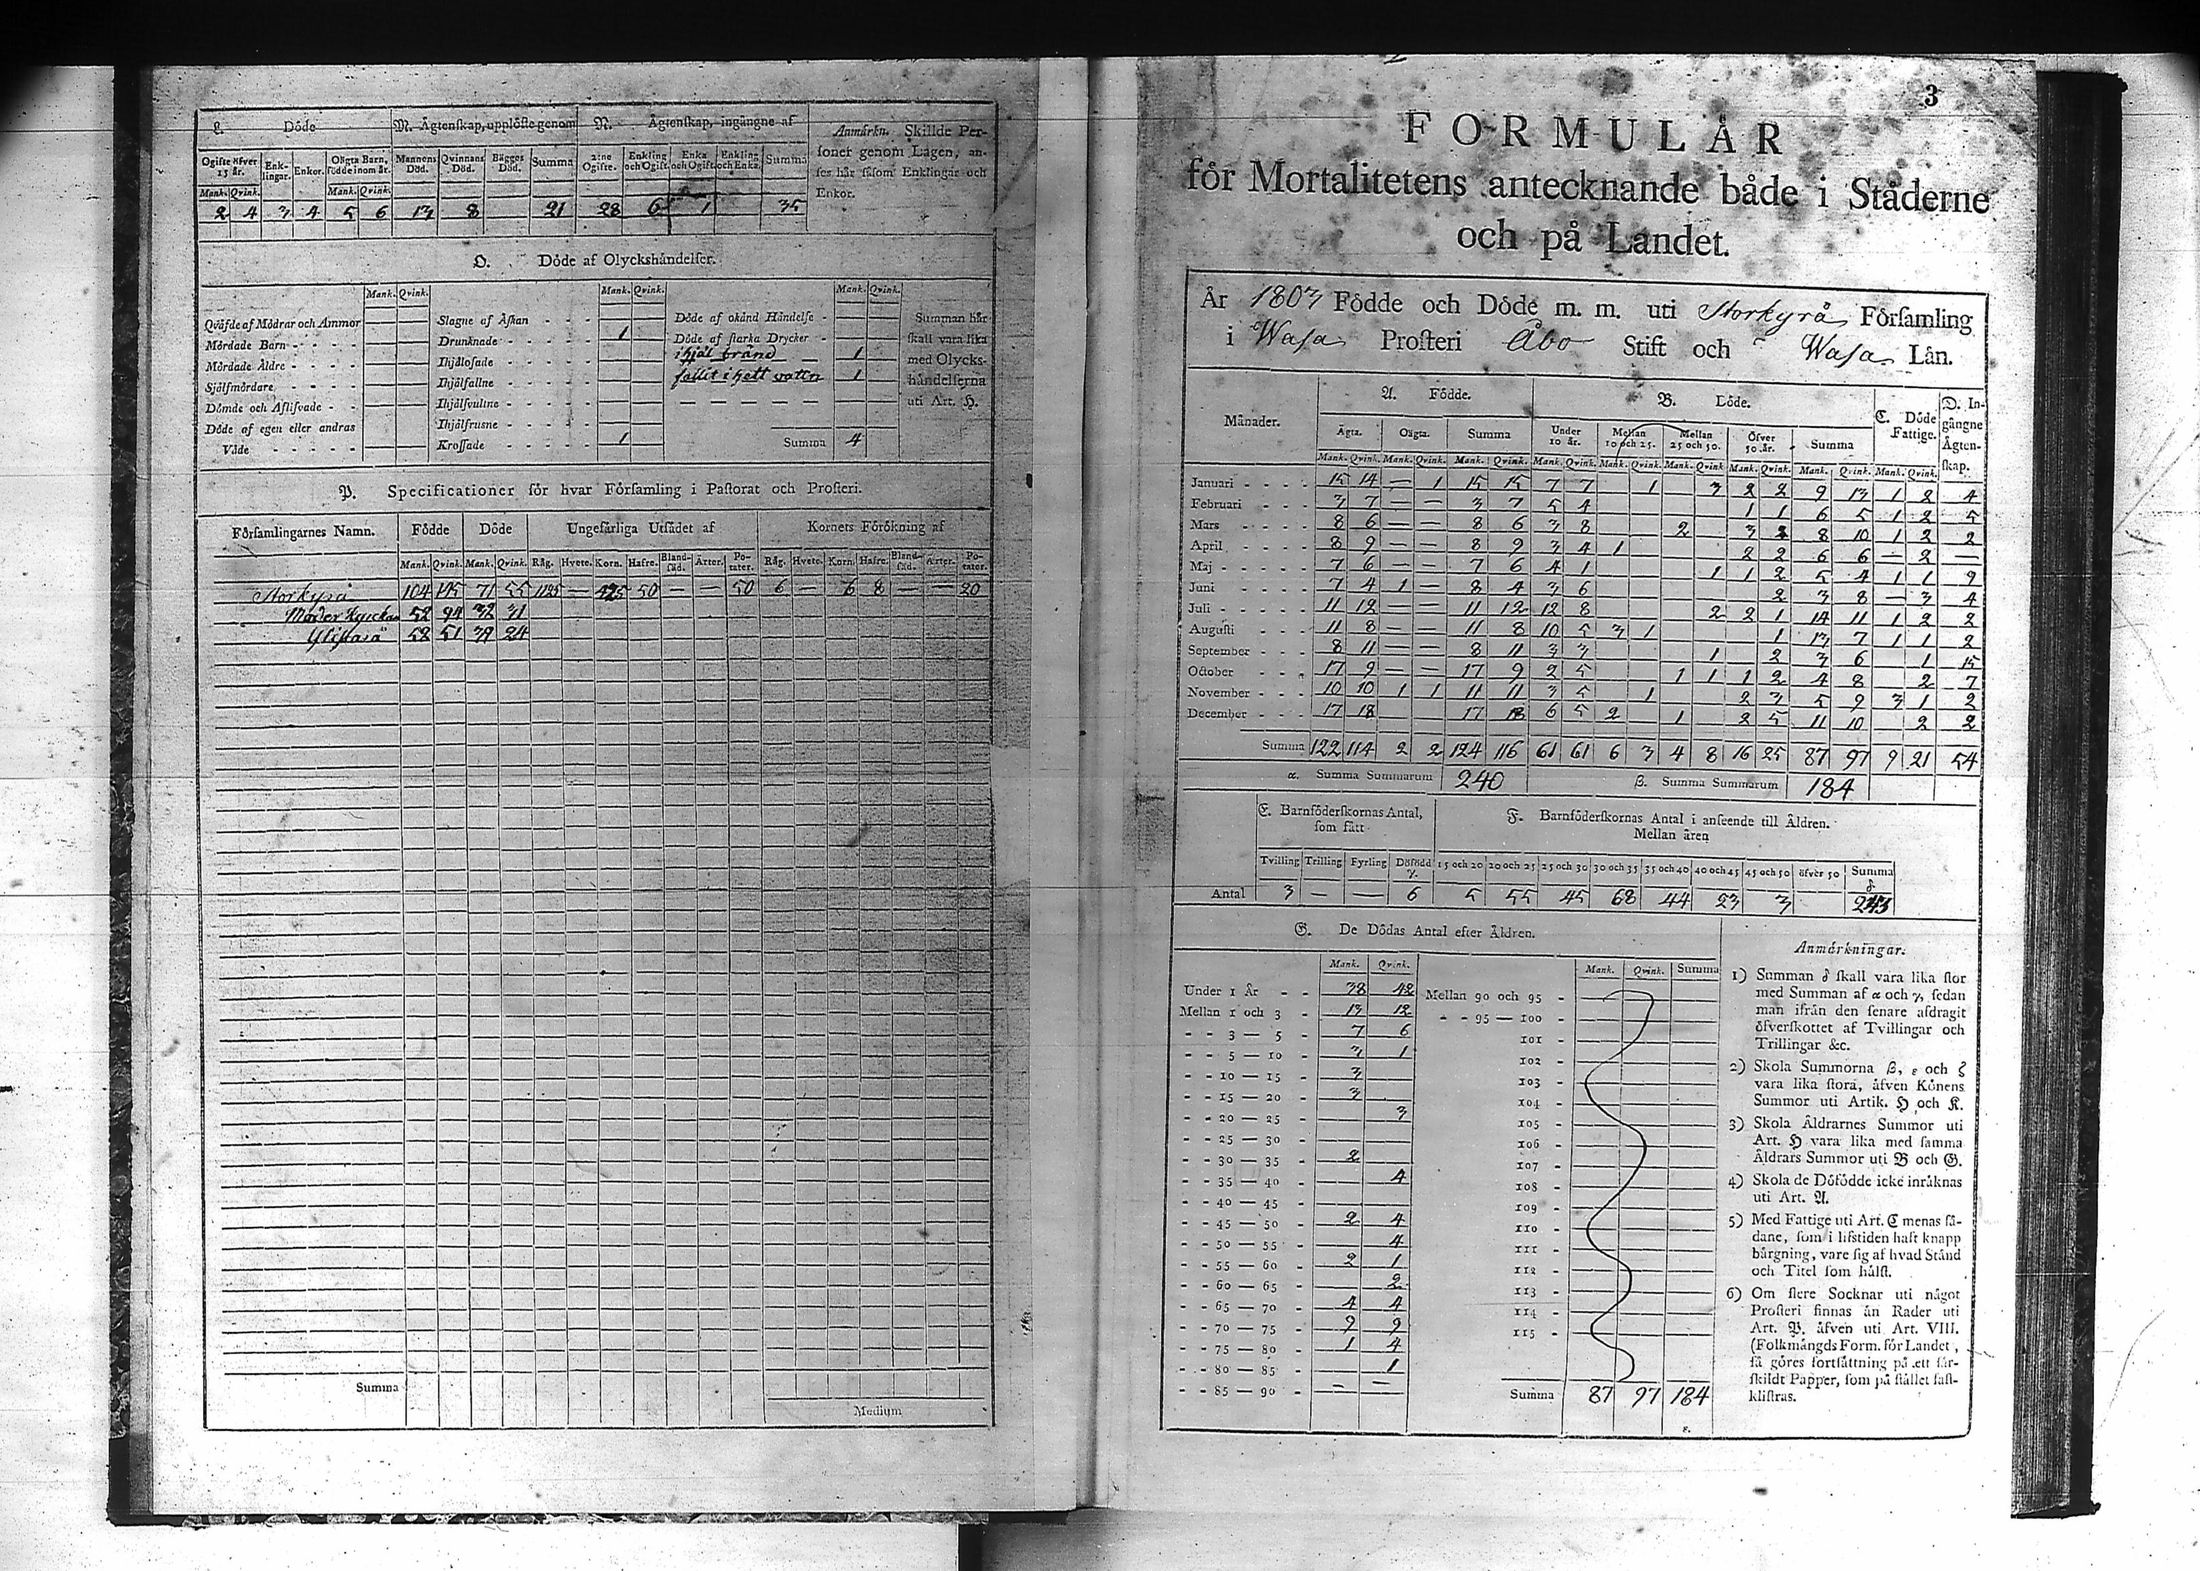 L. Döde
M. Ägtenskap, upplöste genom
N. Ägtenskap, ingångne af
Anmärkn. Skillde Personer genom Lagen, anses här såsom Enklingar och Enkor.
Ogifte öfver 15 år. Enklingar. Enkor. Oägta Barn, födde inom år. Mannens Död. Qvinnans Död. Bägges Död. Summa 2:ne Ogifte. Enkling och Ogift. Enka och Ogift. Enkling och Enka. Summa
Mank. Qvink. Mank. Qvink.
2 4 3 4 5 6 13 8 21 28 6 1 35
O. Döde af Olyckshändelser.
Mank. Qvink. Mank. Qvink. Mank. Qvink.
Qväfde af Mödrar och Ammor
Mördade Barn
Mördade Äldre
Självmördare
Dömde och Aflifvade
Döde af egen eller andras
Våde
Slagne af Åskan
Drunknade 1
Ihjälosade
Ihjälfallne
Ihjälsvultne
Ihjälfrusne
Krossade 1
Döde af okänd Händelse
Döde af starka Drycker
ihjäl bränd 1
fallit i hett vatten 1
Summa 4
Summan här
skall vara lika
med Olycks-
händelserna
uti Art. H.
P. Specificationer för hvar Församling i Pastorat och Prosteri.
Församlingarnes Namn. Födde Döde Ungefärliga Utsädet af Kornets Förökning af
Mank. Qvink. Mank. Qvink. Råg. Hvete. Korn. Hafre. Blandsäd. Ärter. Potater. Råg. Hvete. Korn. Hafre. Blandsäd. Ärter. Potater.
Storkyrå 104 71 55 50 — — 50 6 — 6 8 — — 20
Moder Kyrckan 52 94 32 31
Ylistarå 52 51 39 24
Summa
Medium
3
FORMULÄR
för Mortalitetens antecknande både i Städerne
och på Landet.
År 1803 Födde och Döde m. m. uti Storkyrå Församling
i Wasa Prosteri Åbo Stift och Wasa Län.
Månader. A. Födde. B. Döde. C. Döde Fattige. D. Ingångne Ägtenskap.
Ägta. Oägta. Summa Under 10 år. Mellan 10 och 25. Mellan 25 och 50. Öfver 50 år. Summa
Mank. Qvink. Mank. Qvink. Mank. Qvink. Mank. Qvink. Mank. Qvink. Mank. Qvink. Mank. Qvink. Mank. Qvink. Mank. Qvink.
Januari 15 14 — 1 15 15 7 7 1 3 2 2 9 13 1 2 4
Februari 3 7 — — 3 7 5 4 1 1 6 5 1 2 5
Mars 8 6 — — 8 6 3 8 2 3 8 10 1 2 2
April 8 9 — — 8 9 3 4 1 2 2 6 6 — 2 —
Maj 7 6 — — 7 6 4 1 1 1 2 5 4 1 1 9
Juni 7 4 1 — 8 4 3 6 2 3 8 — 3 4
Juli 11 12 — — 11 12 12 8 2 2 1 14 11 1 2 2
Augusti 11 8 — — 11 8 10 5 3 1 1 13 7 1 1 2
September 8 11 — — 8 11 3 3 1 2 3 6 1 15
October 17 9 — — 17 9 2 5 1 1 1 2 4 8 2 7
November 10 10 1 1 11 11 3 5 1 2 3 5 9 3 1 2
December 17 18 17 18 6 5 2 1 2 5 11 10 2 2
Summa 122 114 2 2 124 116 61 61 6 3 4 8 16 25 87 97 9 21 54
α. Summa Summarum 240 β. Summa Summarum 184
E. Barnföderskornas Antal, som fått
F. Barnföderskornas Antal i anseende till Åldren.
Mellan åren
Tvilling Trilling Fyrling Dödfödd γ. 15 och 20 20 och 25 25 och 30 30 och 35 35 och 40 40 och 45 45 och 50 öfver 50 Summa δ
Antal 3 — — 6 5 55 45 68 44 23 3 243
G. De Dödas Antal efter Åldren.
Mank. Qvink. Mank. Qvink. Summa
Under 1 År 38 42
Mellan 1 och 3 13 12
3 — 5 7 6
5 — 10 3 1
10 — 15 3
15 — 20 3
20 — 25 3
25 — 30
30 — 35 2
35 — 40 4
40 — 45
45 — 50 2 4
50 — 55 4
55 — 60 2 1
60 — 65 2
65 — 70 4 4
70 — 75 9 9
75 — 80 1 4
80 — 85 1
85 — 90 — —
Mellan 90 och 95
95 — 100
101
102
103
104
105
106
107
108
109
110
111
112
113
114
115
Summa 87 97 184
ε.
Anmärkningar.
1) Summan δ skall vara lika stor
med Summan af α och γ, sedan
man ifrån den senare afdragit
öfverskottet af Tvillingar och
Trillingar &c.
2) Skola Summorna β, ε och ζ
vara lika stora, äfven Könens
Summor uti Artik. H och K.
3) Skola Åldrarnes Summor uti
Art. H vara lika med samma
Åldrars Summor uti B och G.
4) Skola de Döfödde icke inräknas
uti Art. A.
5) Med Fattige uti Art. C menas så-
dane, som i lifstiden haft knapp
bärgning, vare sig af hvad Stånd
och Titel som hälst.
6) Om flere Socknar uti något
Prosteri finnas än Rader uti
Art. P. äfven uti Art. VIII.
(Folkmängds Form. för Landet,
så göres fortsättning på ett sär-
skildt Papper, som på stället fast-
klistras.